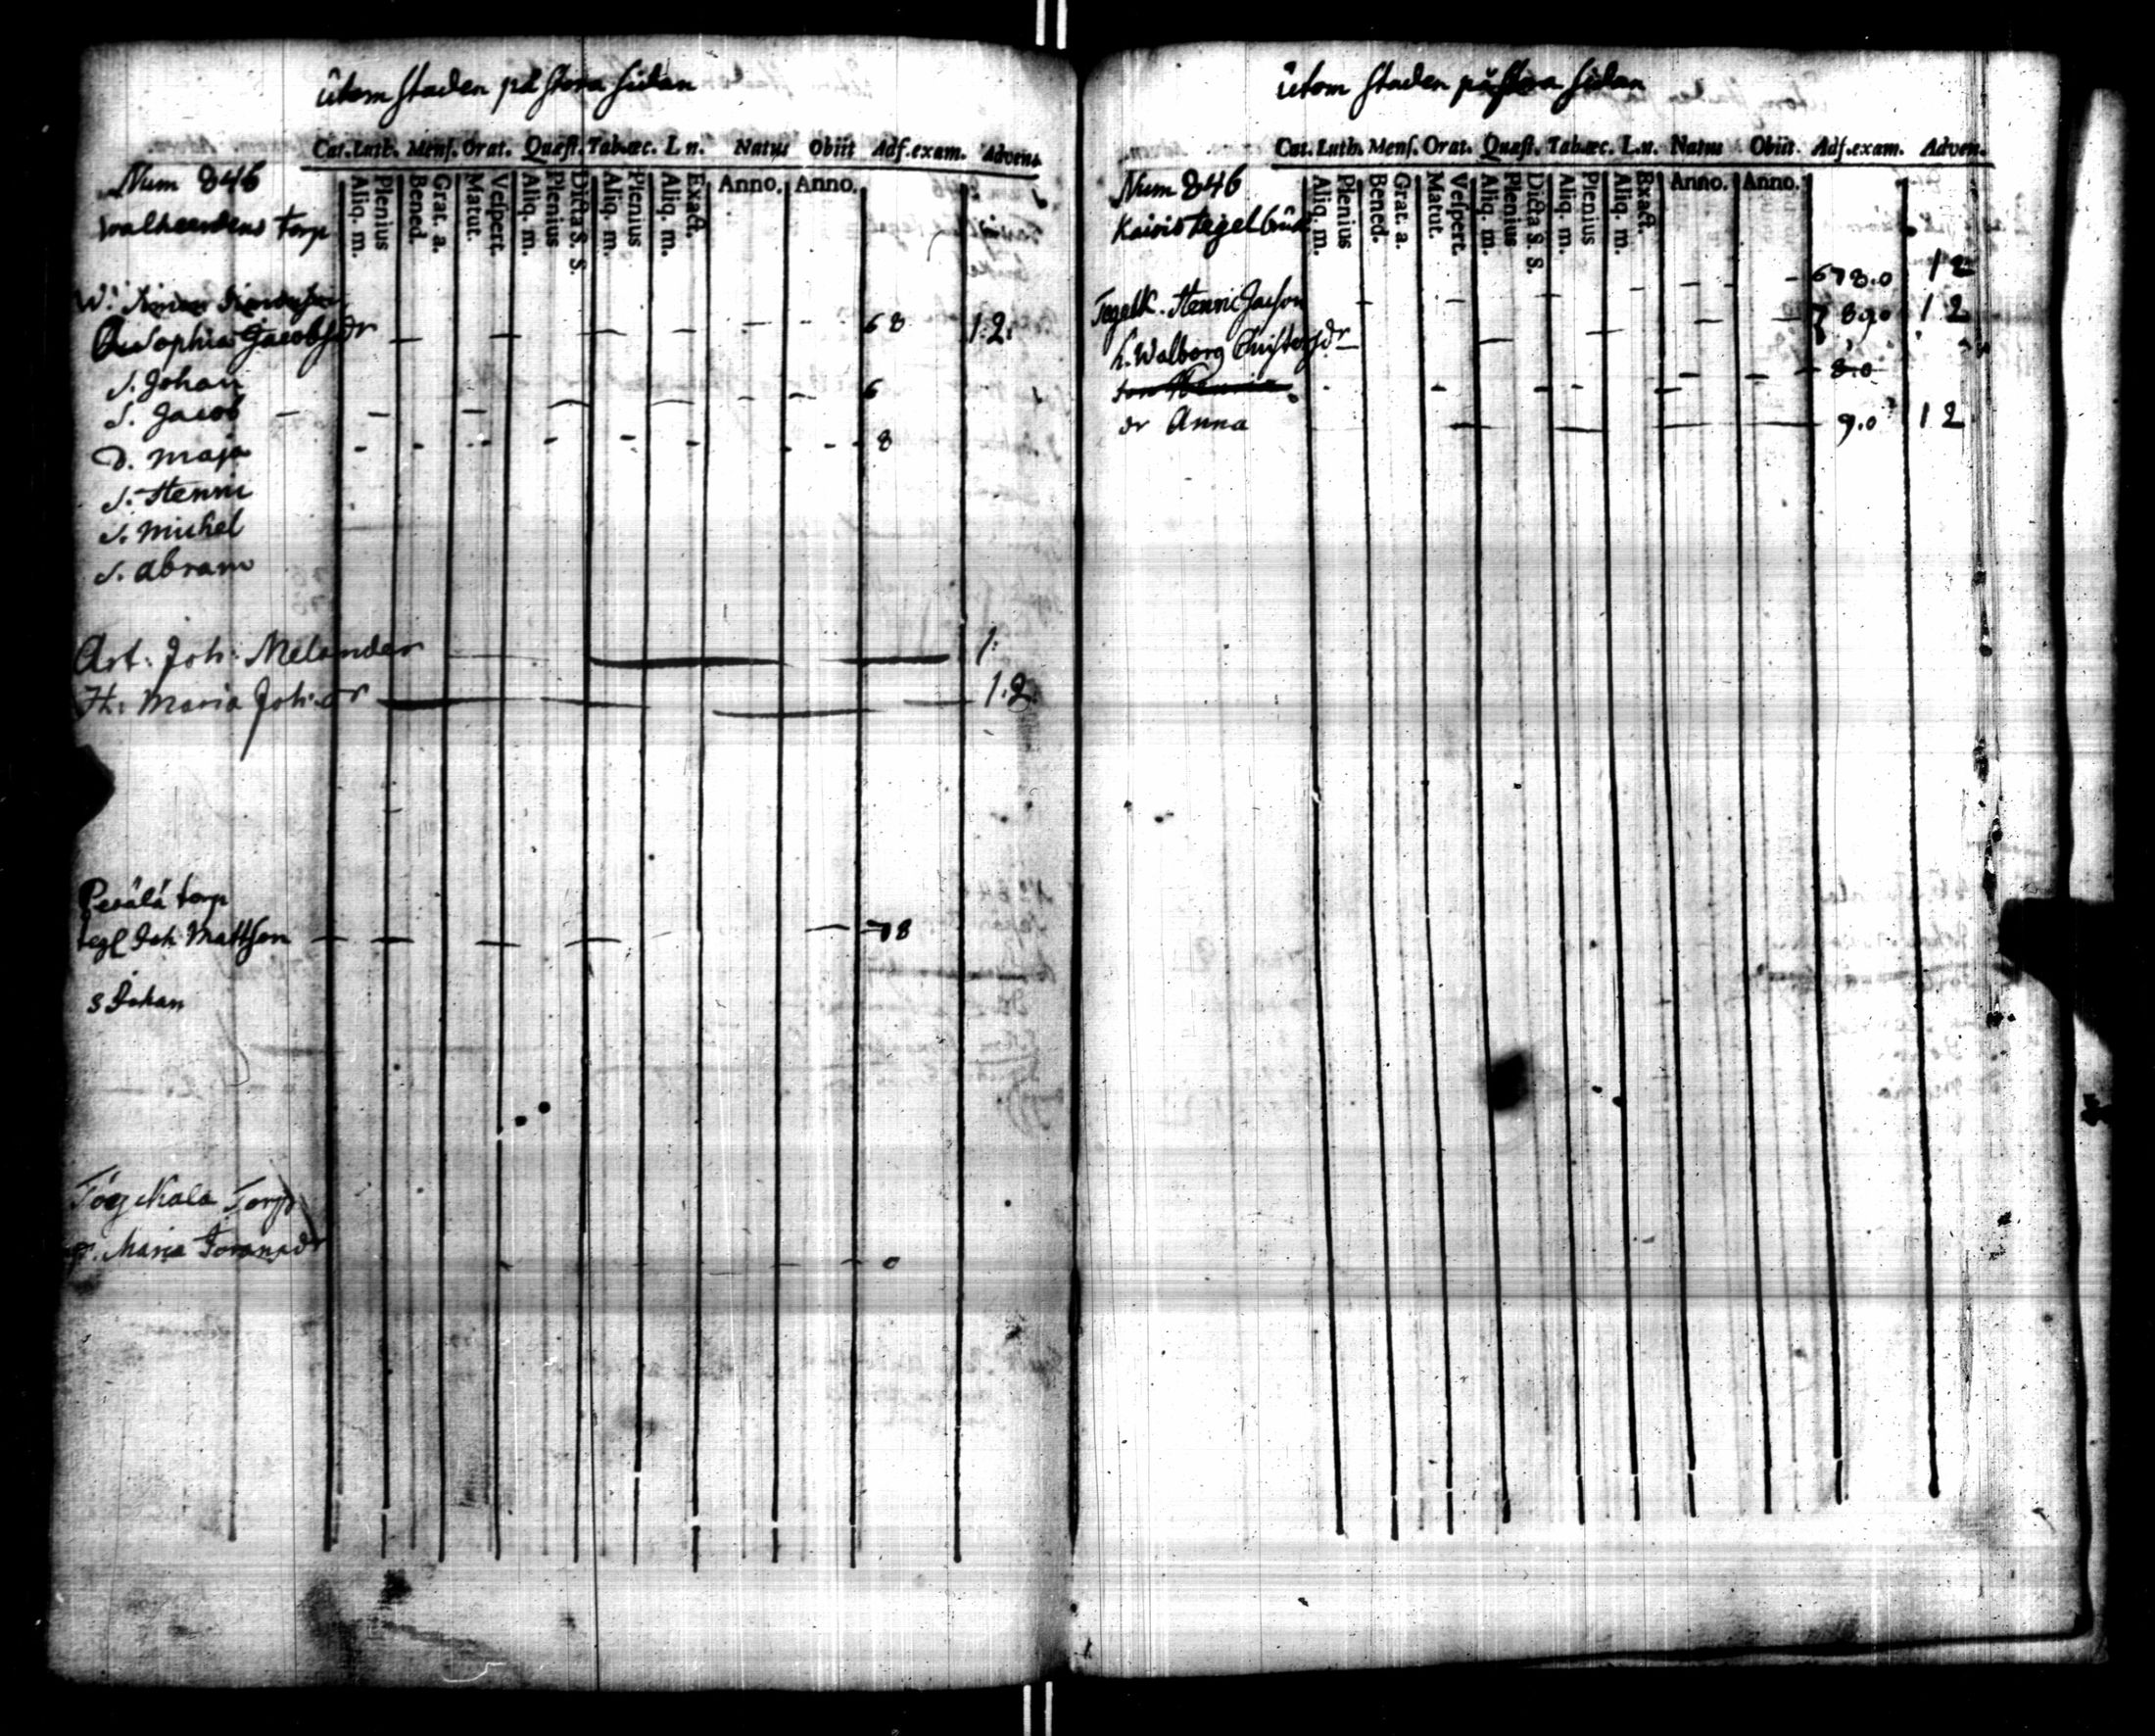 utom staden på stora sidan
Cat. Luth. Mens. Orat. Quæst. Tab.œc. L. n. Natus Obiit Adf.exam. Advent.
Aliq. m. Plenius Bened. Grat. a. Matut. Vespert. Aliq. m. Plenius Dicta S. S. Aliq. m. Plenius Aliq. m. Exact. Anno. Anno.
Num 846
torp
W.
Sophia Jacobsdr 68 1.2.
S. Johan
S. Jacob 6
D. Maja 8
S. Henric
S. Michel
S. Abram
Art. Joh. Melander 1.
H. Maria Joh. dr 1.2
Perälä torp
tegl Joh Mattsson 78
s Johan
Torp
Maria
utom staden på stora sidan
Cat. Luth. Mens. Orat. Quæst. Tab.œc. L. n. Natus Obiit. Adf.exam. Adven.
Aliq. m. Plenius Bened. Grat. a. Matut. Vespert. Aliq. m. Plenius Dicta S. S. Aliq. m. Plenius Aliq. m. Exact. Anno. Anno.
Num 846
Kaisis tegelbruk
Tegelk. Henric Jacson 678.0 1 2
h. Walborg Christersdr 7 89.0 1 2
8.0
dr Anna 9.0 1 2